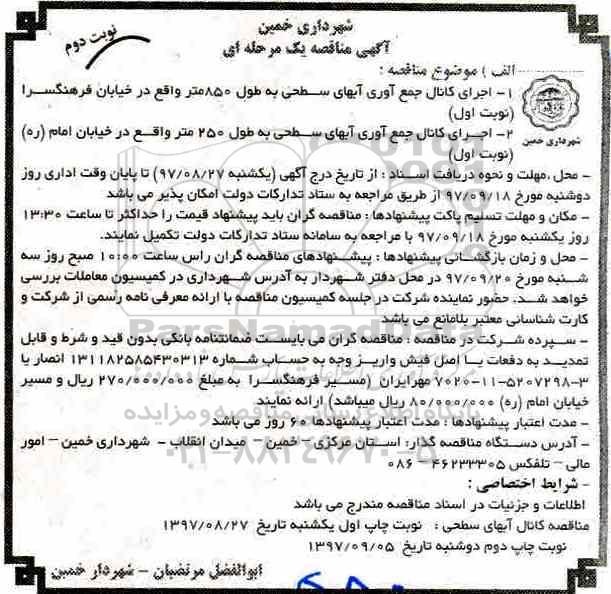 شهرداری خمین
آگهی مناقصه یک مرحله ای
نوبت دوم
الف ) موضوع مناقصه :
۱- اجرای کانال جمع آوری آبهای سطحی به طول ۸۵۰متر واقع در خیابان فرهنگسرا
(نوبت اول)
۲- اجرای کانال جمع آوری آبهای سطحی به طول ۲۵۰ متر واقع در خیابان امام (ره)
(نوبت اول)
شهرداری خمین
- محل ،مهلت و نحوه دریافت اسناد : از تاریخ درج آگهی (یکشنبه ۹۷/۰۸/۲۷) تا پایان وقت اداری روز
دوشنبه مورخ ۹۷/۰۹/۱۸ از طریق مراجعه به ستاد تدارکات دولت امکان پذیر می باشد
- مکان و مهلت تسلیم پاکت پیشنهادها : مناقصه گران باید پیشنهاد قیمت را حداکثر تا ساعت ۱۳:۳۰
روز یکشنبه مورخ ۹۷/۰۹/۱۸ با مراجعه به سامانه ستاد تدارکات دولت تکمیل نمایند.
- محل و زمان بازگشائی پیشنهادها : پیشنهادهای مناقصه گران راس ساعت ۱۰:۰۰ صبح روز سه
شنبه مورخ ۹۷/۰۹/۲۰ در محل دفتر شهردار به آدرس شهرداری در کمیسیون معاملات بررسی
خواهد شد. حضور نماینده شرکت در جلسه کمیسیون مناقصه با ارائه معرفی نامه رسمی از شرکت و
کارت شناسائی معتبر بلامانع می باشد
- سپرده شرکت در مناقصه : مناقصه گران می بایست ضمانتنامه بانکی بدون قید و شرط و قابل
تمدید به دفعات یا اصل فیش واریز وجه به حساب شماره ۱۳۱۱۸۲۵۸۵۴۳۰۳۱۳ انصار یا
۷۰۲۰-۱۱-۵۲۰۷۲۹۸-۳ مهرایران (مسیر فرهنگسرا به مبلغ ۲۷۰/۰۰۰/۰۰۰ ریال و مسیر
خیابان امام (ره) ۸۰/۰۰۰/۰۰۰ ریال میباشد) ارائه نمایند.
- مدت اعتبار پیشنهادها : مدت اعتبار پیشنهادها ۶۰ روز می باشد
- آدرس دستگاه مناقصه گذار: استان مرکزی – خمین – میدان انقلاب - شهرداری خمین – امور
مالی – تلفکس ۴۶۲۳۳۳۰۵ - ۰۸۶
- شرایط اختصاصی :
اطلاعات و جزئیات در اسناد مناقصه مندرج می باشد
مناقصه کانال آبهای سطحی : نوبت چاپ اول یکشنبه تاریخ ۱۳۹۷/۰۸/۲۷
نوبت چاپ دوم دوشنبه تاریخ ۱۳۹۷/۰۹/۰۵
ابوالفضل مرتضیان - شهردار خمین
ParsNamadData
پایگاه اطلاع رسانی مناقصه و مزایده
۰۲۱-۸۸۳۴۹۶۷۰-۵